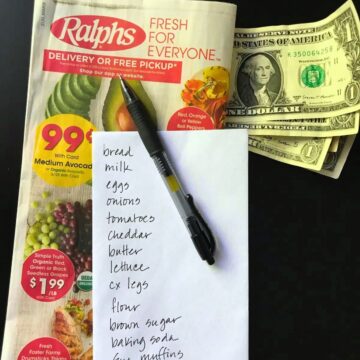 Ralphs
FRESH
FOR
EVERYONE™
DELIVERY OR FREE PICKUP*
Shop our app or website.
Red, Orange
or Yellow
Red Peppers
99¢
With Card
Medium Avocado
Simple Truth
Organic Red,
Green or Black
Seedless Grapes
$1.99
/LB
With Card
Fresh
Foster Farms
Drumsticks, Thighs
bread
milk
eggs
onions
tomatoes
cheddar
butter
lettuce
cx legs
flour
brown sugar
baking soda
muffins
STATES OF AMERICA
ONE DOLLAR
1